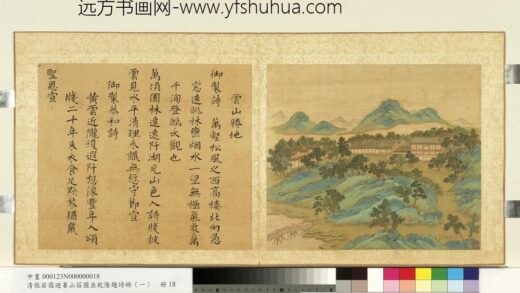 远方书画网-www.yfshuhua.com
雲山勝地
御製詩 萬壑松風之西高樓北向憑
窓遠眺林巒烟水一望無極氣象萬
千洵登臨大觀也
萬頃園林達遠阡湖光山色入詩牋披
雲見水平清理未識無愆守節宣
御製恭和詩
黄雲近隴復遐阡想像豐年入頌
牋二十年來衣食足黔黎猶戴
聖恩宣
中畫 000123N000000018
清張若靄避暑山莊圖並乾隆題詩冊(一) 冊 18